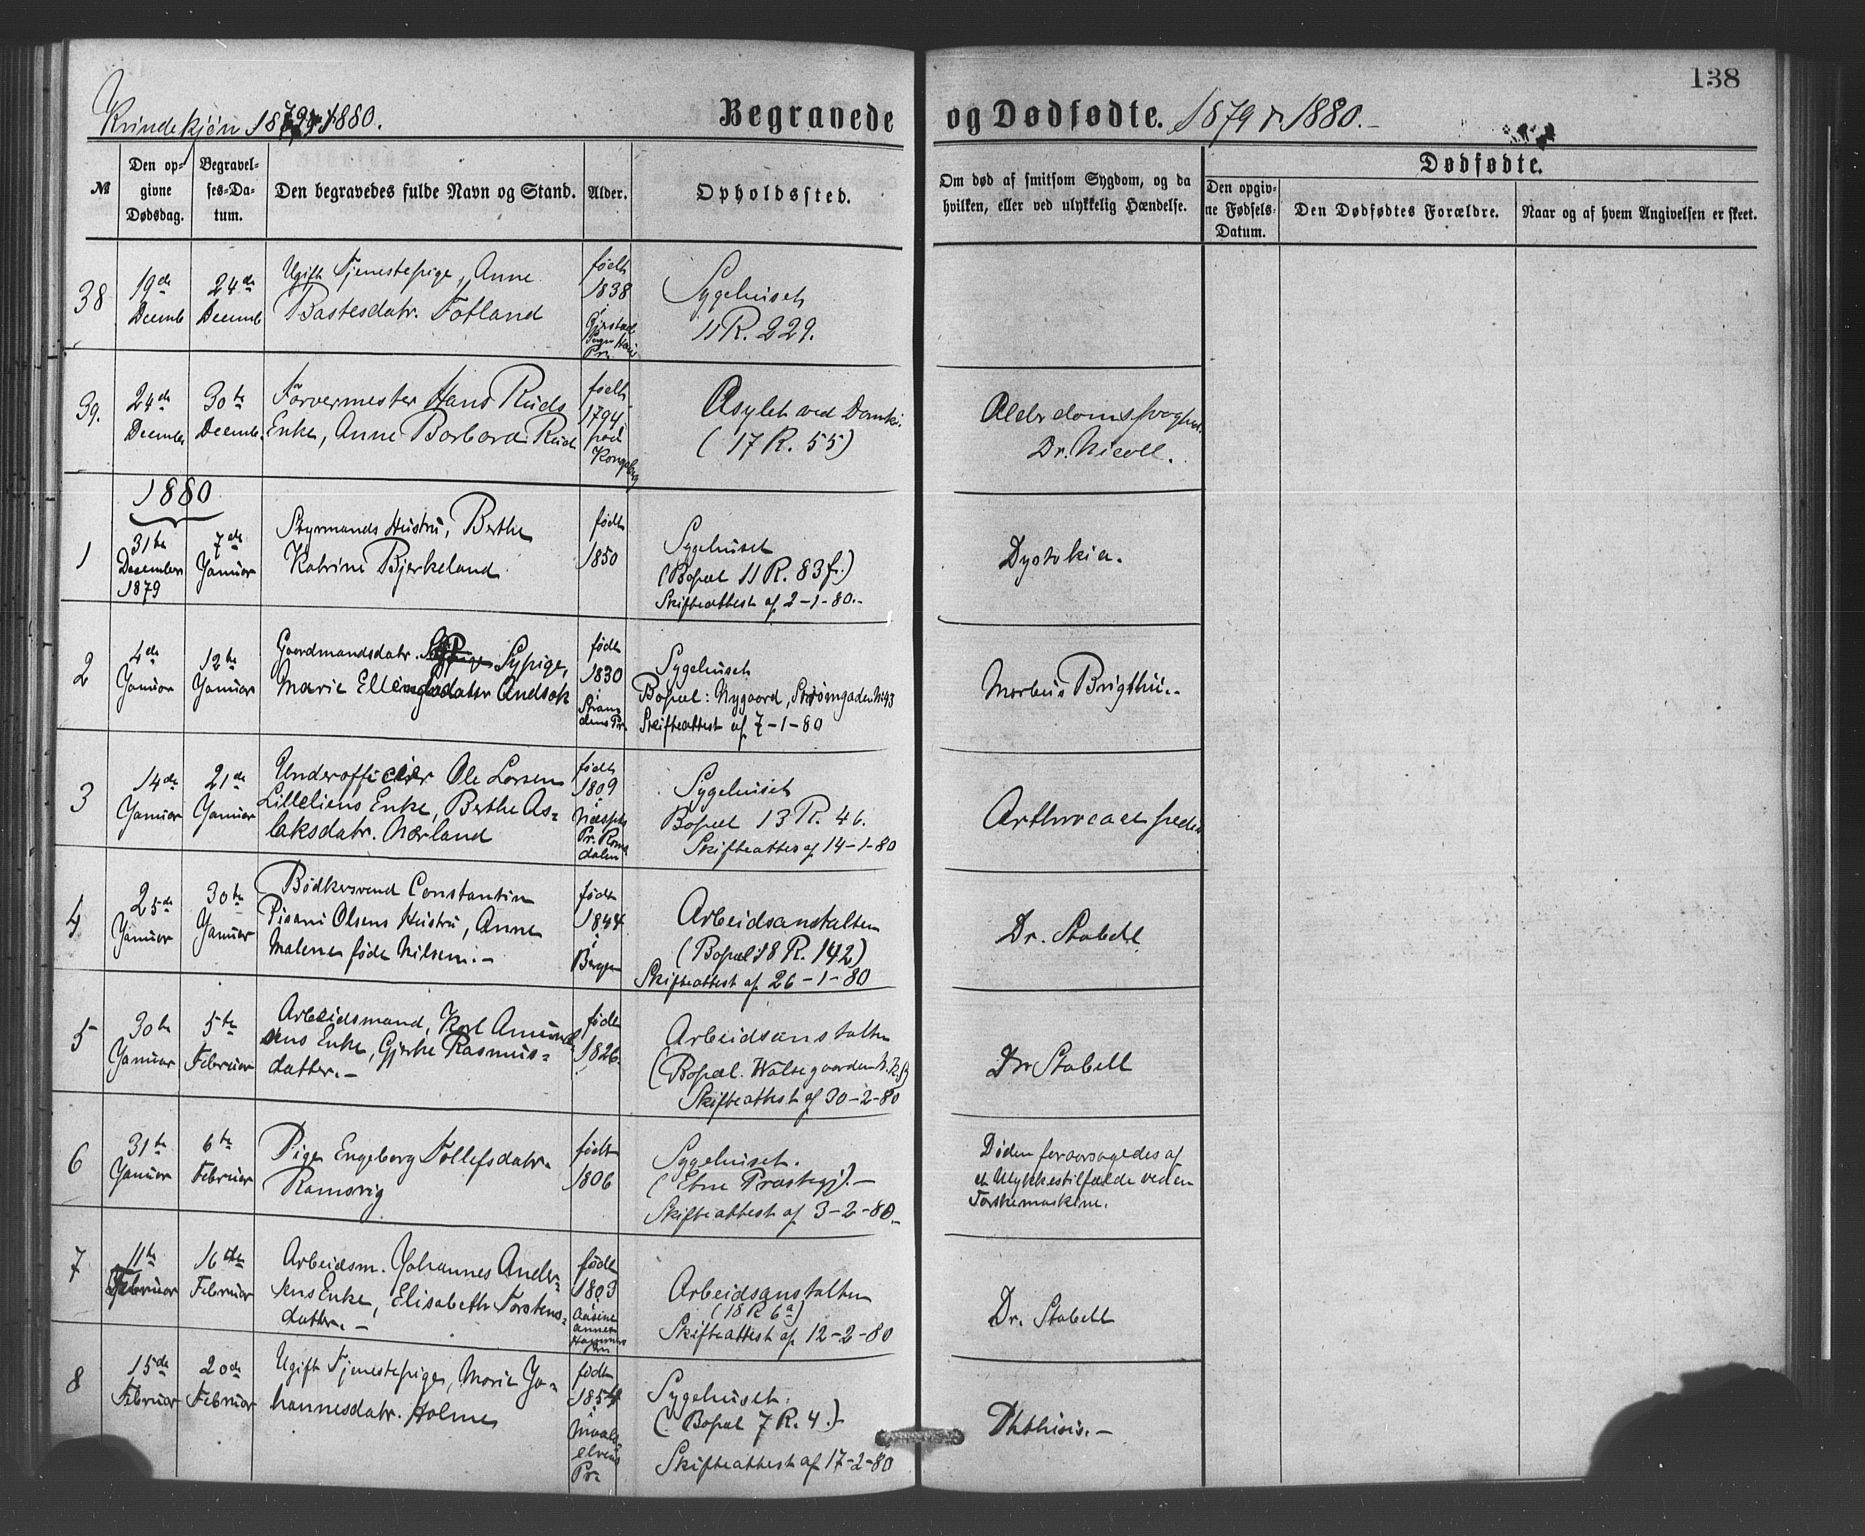 138
Kvindekjön 1879 & 1880.
Begravede og Dødfødte. 1879 & 1880.-
№
Den opgivne Dødsdag.
Begravelses-Datum.
Den begravedes fulde Navn og Stand.
Alder.
Opholdssted.
Om død af smitsom Sygdom, og da hvilken, eller ved ulykkelig Hændelse.
Dødfødte.
Den opgivne Fødsels-Datum.
Den Dødfødtes Forældre.
Naar og af hvem Angivelsen er skeet.
38
19de
Decemb
24de
Decemb
Ugift Tjenestepige, Anne
Bastesdatr. Totland
født
1838
i
Sygehuset
11 R. 229.
39.
24de
Decemb
30te
Decemb.
Farvermester Hans Ruds
Enke, Anne Barbara Rud
født
1794
paa
Kongsberg
Asylet ved Domki.
(17 R. 55)
Alderdomssvaghed.
Dr. Nicoll.
1880
1
31te
December
1879
7de
Januar
Styrmands Hustru, Berthe
Katrine Bjerkeland
født
1850
Sygehuset
(Bopæl 11 R. 83 f.)
Skifteattest af 2-1-80.-
Dystokia.
2
4de
Januar
12te
Januar
Gaardmandsdatr. Sypige,
Marie Ellingsdatter Andsøk
født
1830
i
Sygehuset
Bopæl: Nygaard, Strømgaden No 43
Skifteattest af 7-1-80
Morbus Brigthii.-
3
14de
Januar
21de
Januar
Underofficier Ole Larsen
Lilleliens Enke, Berthe As-
laksdatr. Nærland
født
1809
i
Pr. Roms
dalen
Sygehuset
Bopæl 13 R. 46.
Skifteattes af 14-1-80
4
25de
Januar
30te
Januar
Bødkersvend Constantin
Pisani Olsens Hustru, Anne
Malene født Nilsen.-
født
1844
i
Bergen
Arbeidsanstalten
(Bopæl 18 R. 142)
Skifteattest af 26-1-80
Dr. Stabell
5
30te
Januar
5te
Februar
Arbeidsmand, Karl Amund-
sens Enke, Gjertke Rasmus-
datter.-
født
1826.
Arbeidsanstalten
(Bopæl. Walsegaarden
Skifteattest af 30-2-80
Dr Stabell
6
31te
Januar
6te
Februar
Pige Engeborg Tollefsdatr.
Ramsvig
født
1806
Sygehuset.
(Etne Præstegj).-
Skifteattest af 3-2-80.-
Døden foraarsagedes af
et Ulykkestilfælde ved en
Tærskemaskine.
7
11te
Februar
16de
Februar
Arbeidsm. Johannes Ander-
sens Enke, Elisabeth Torstens-
datter.-
født
1803
Arbeidsanstalten
(18 R 6a)
Skifteattest af 12-2-80
Dr. Stabell
8
15de
Februar
20de
Februar
Ugift Tjenestepige, Marie Jo-
hannesdatr. Holmen
født
1854
i
Maals
elvens
Pr.
Sygehuset.
(Bopæl 7 R. 4.)
Skifteattest af 17-2-80
Phthisis.-